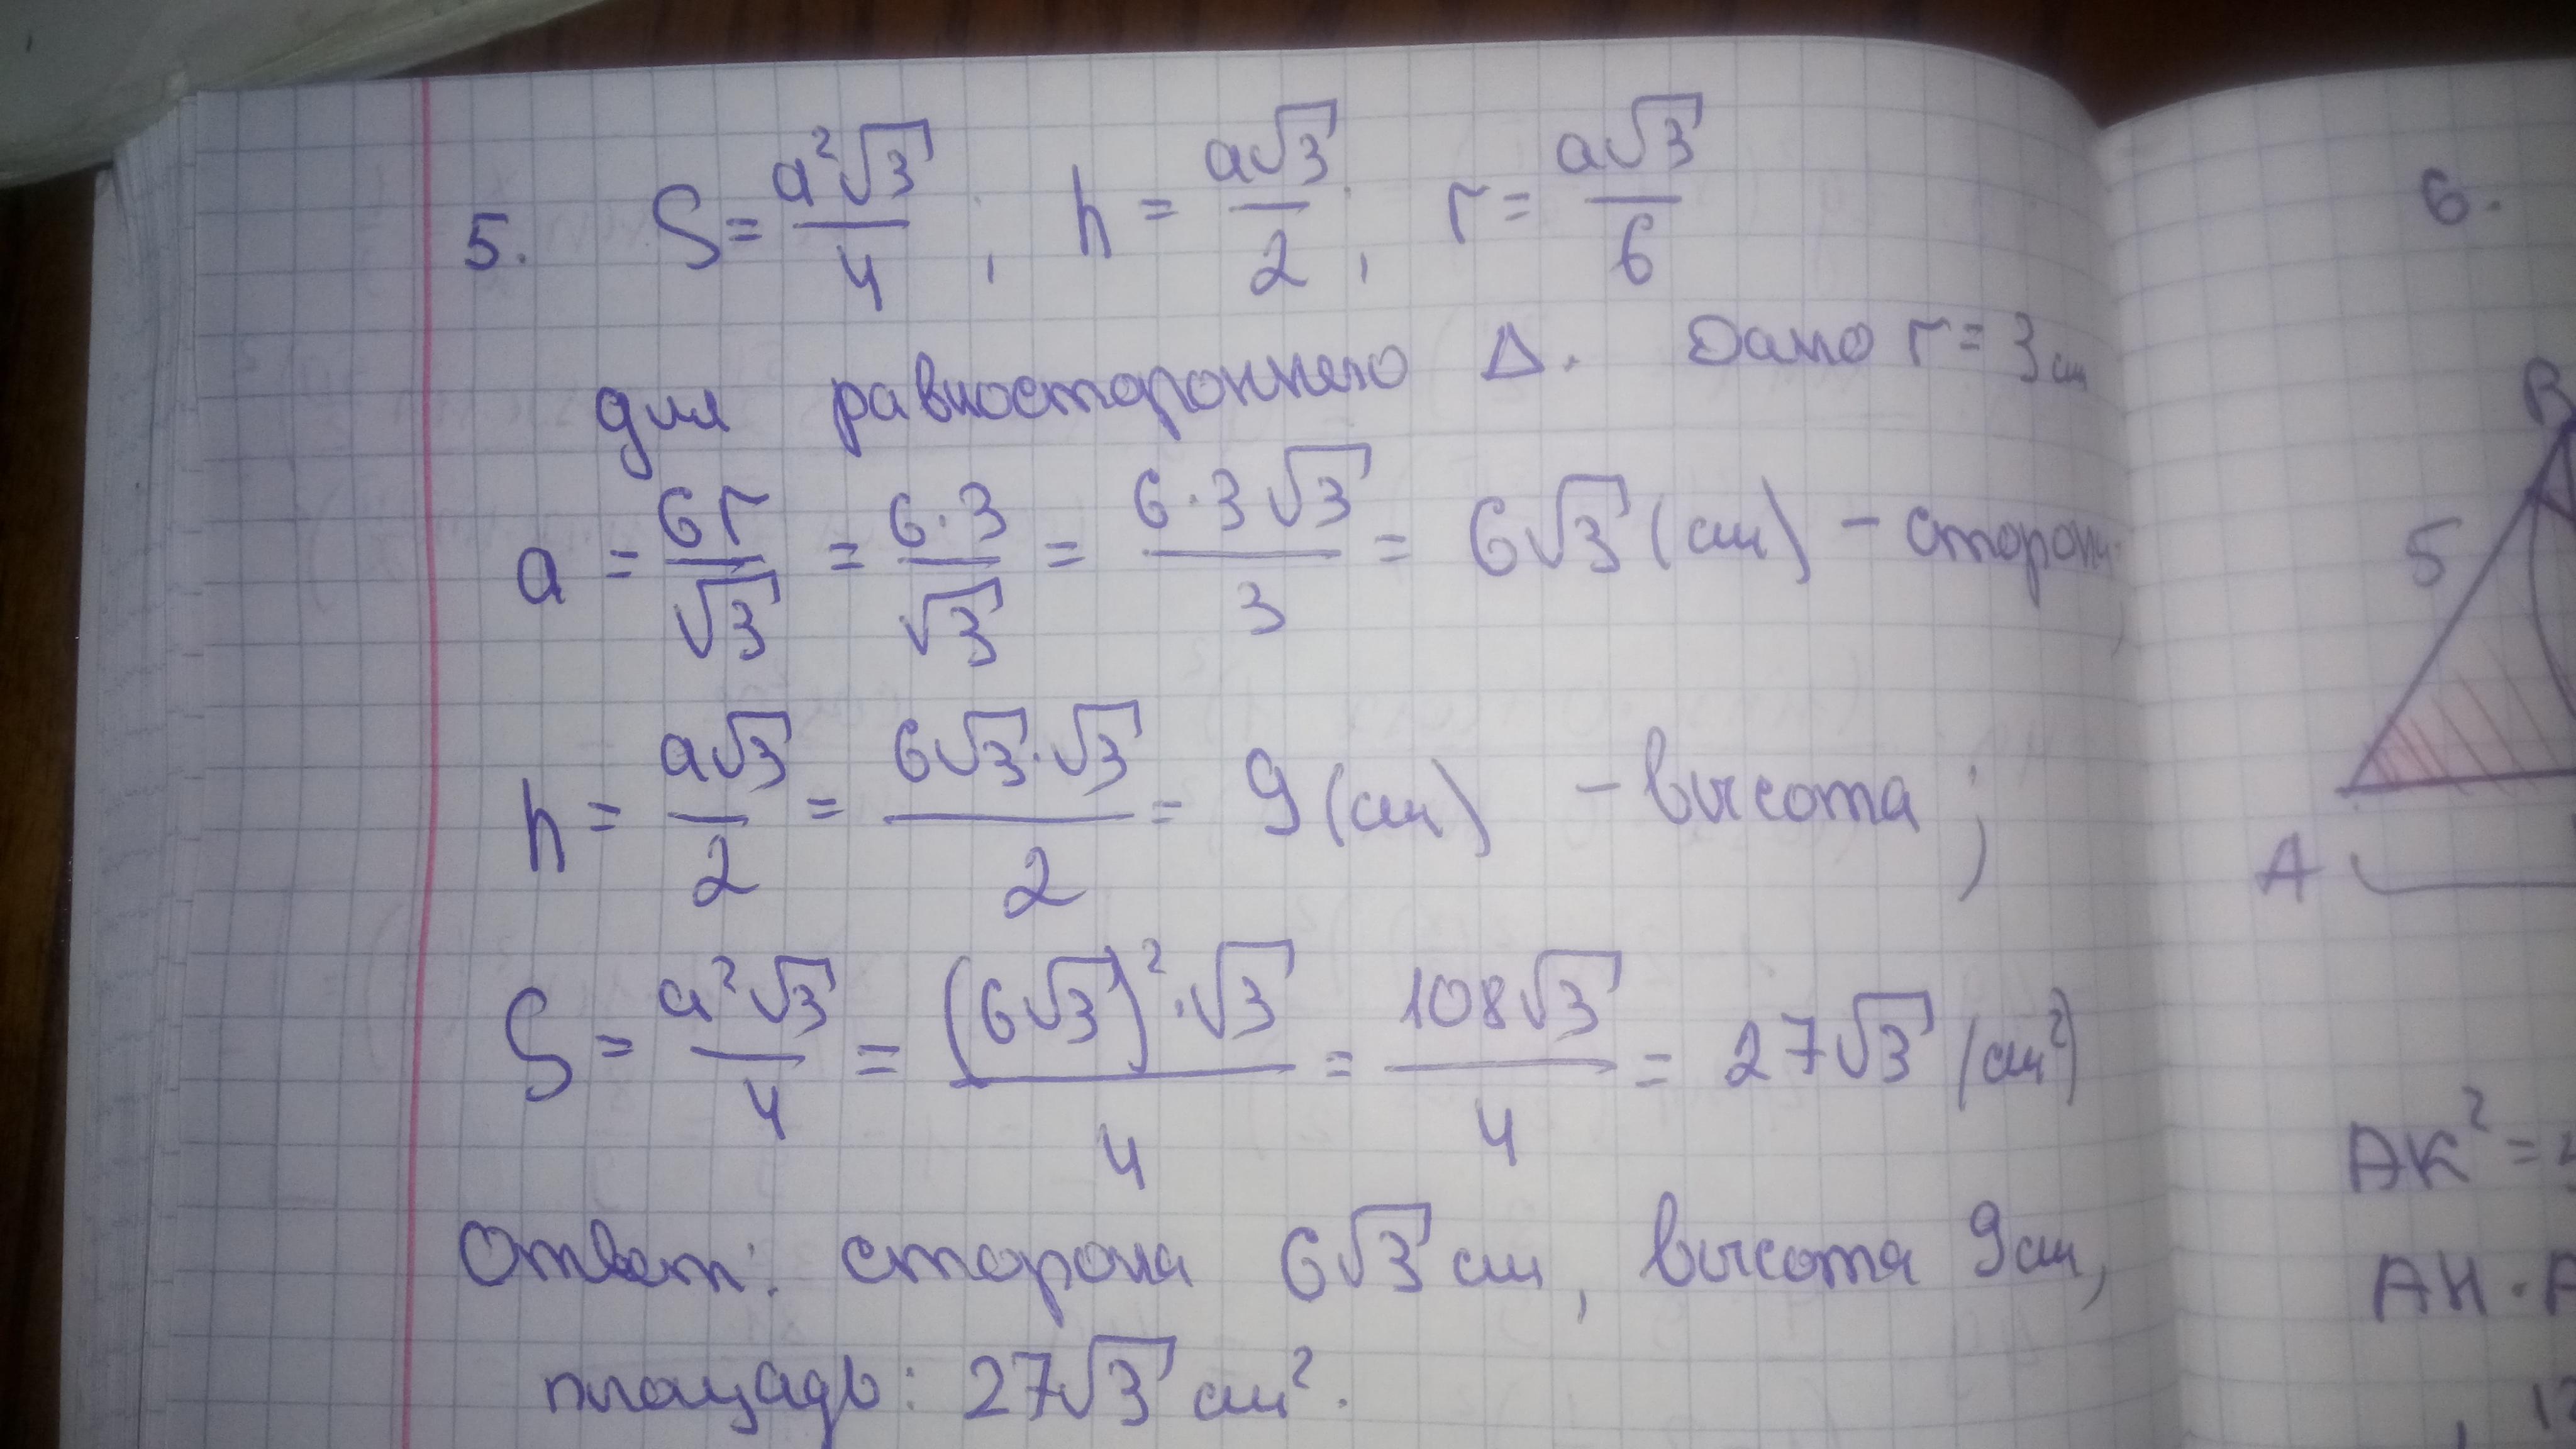 5. S = a²√3/4 ; h = a√3/2 ; r = a√3/6
для равностороннего Δ. Дано r = 3 см
a = 6r/√3 = 6·3/√3 = 6·3√3/3 = 6√3 (см) –
h = a√3/2 = 6√3·√3/2 = 9 (см) – высота ;
S = a²√3/4 = (6√3)²·√3/4 = 108√3/4 = 27√3 (см²)
Ответ: сторона 6√3 см, высота 9 см,
площадь: 27√3 см².
6.
B
5
A
AK² =
AH ·